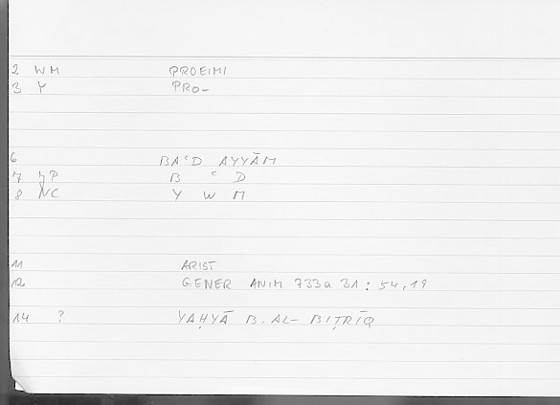 2 WM PROEIMI
3 Y PRO-
6 BAʿD AYYĀM
7 JP B ʿ D
8 NC Y W M
11 ARIST
12 GENER ANIM 733a 31 : 54,19
14 ? YAḤYĀ B. AL- BIṬRĪQ